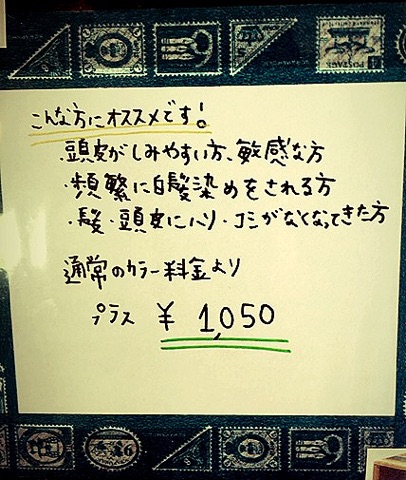 こんな方にオススメです!
・頭皮がしみやすい方、敏感な方
・頻繁に白髪染めをされる方
・髪・頭皮にハリ・コシがなくなってきた方
通常のカラー料金より
プラス ¥ 1,050
POSTAGE